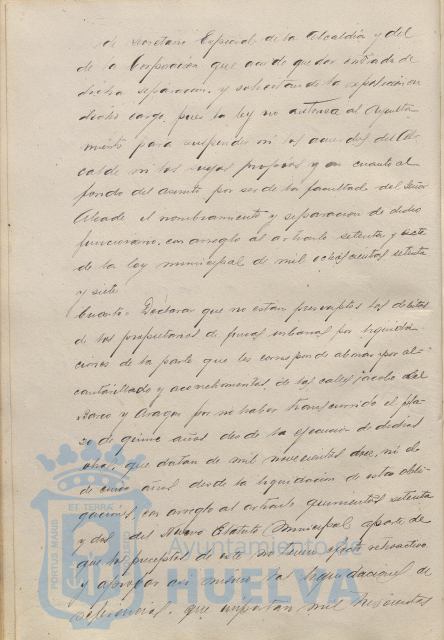 de Secretario Especial de la Alcaldía y del
de la Corporación que acordo quedar enterado de
dicha separación y solicitando la reposición en
dicho cargo, pues la ley no autoriza al Ayunta
miento para suspender ni los acuerdos del Al
calde ni los suyos propios y en cuanto al
fondo del asunto por ser de la facultad del Señor
Alcalde el nombramiento y separación de dicho
funcionario, con arreglo al artículo setenta y ocho
de la ley municipal de mil ochocientos setenta
y siete
Cuarto = Declarar que no estan prescriptos los débitos
de los propietarios de fincas urbanas por liquida
ciones de la parte que les corresponde abonar por al
cantarillado y acerchamientos de las calles Jacobo del
Barco y Aragon por no haber transcurrido el pla
zo de quince años desde la ejecucion de dichas
obras, que datan de mil novecientos doce, ni de
de cinco años desde la liquidacion de estas obli
gaciones, con arreglo al artículo quinientos setenta
y dos del Nuevo Estatuto Municipal aparte de
que los preceptos de este no tienen efecto retroactivo
y aprobar asi mismo las liquidaciones de
que importan mil trescientas
ET TERRAE
PORTUS MARIS
Ayuntamiento de
HUELVA